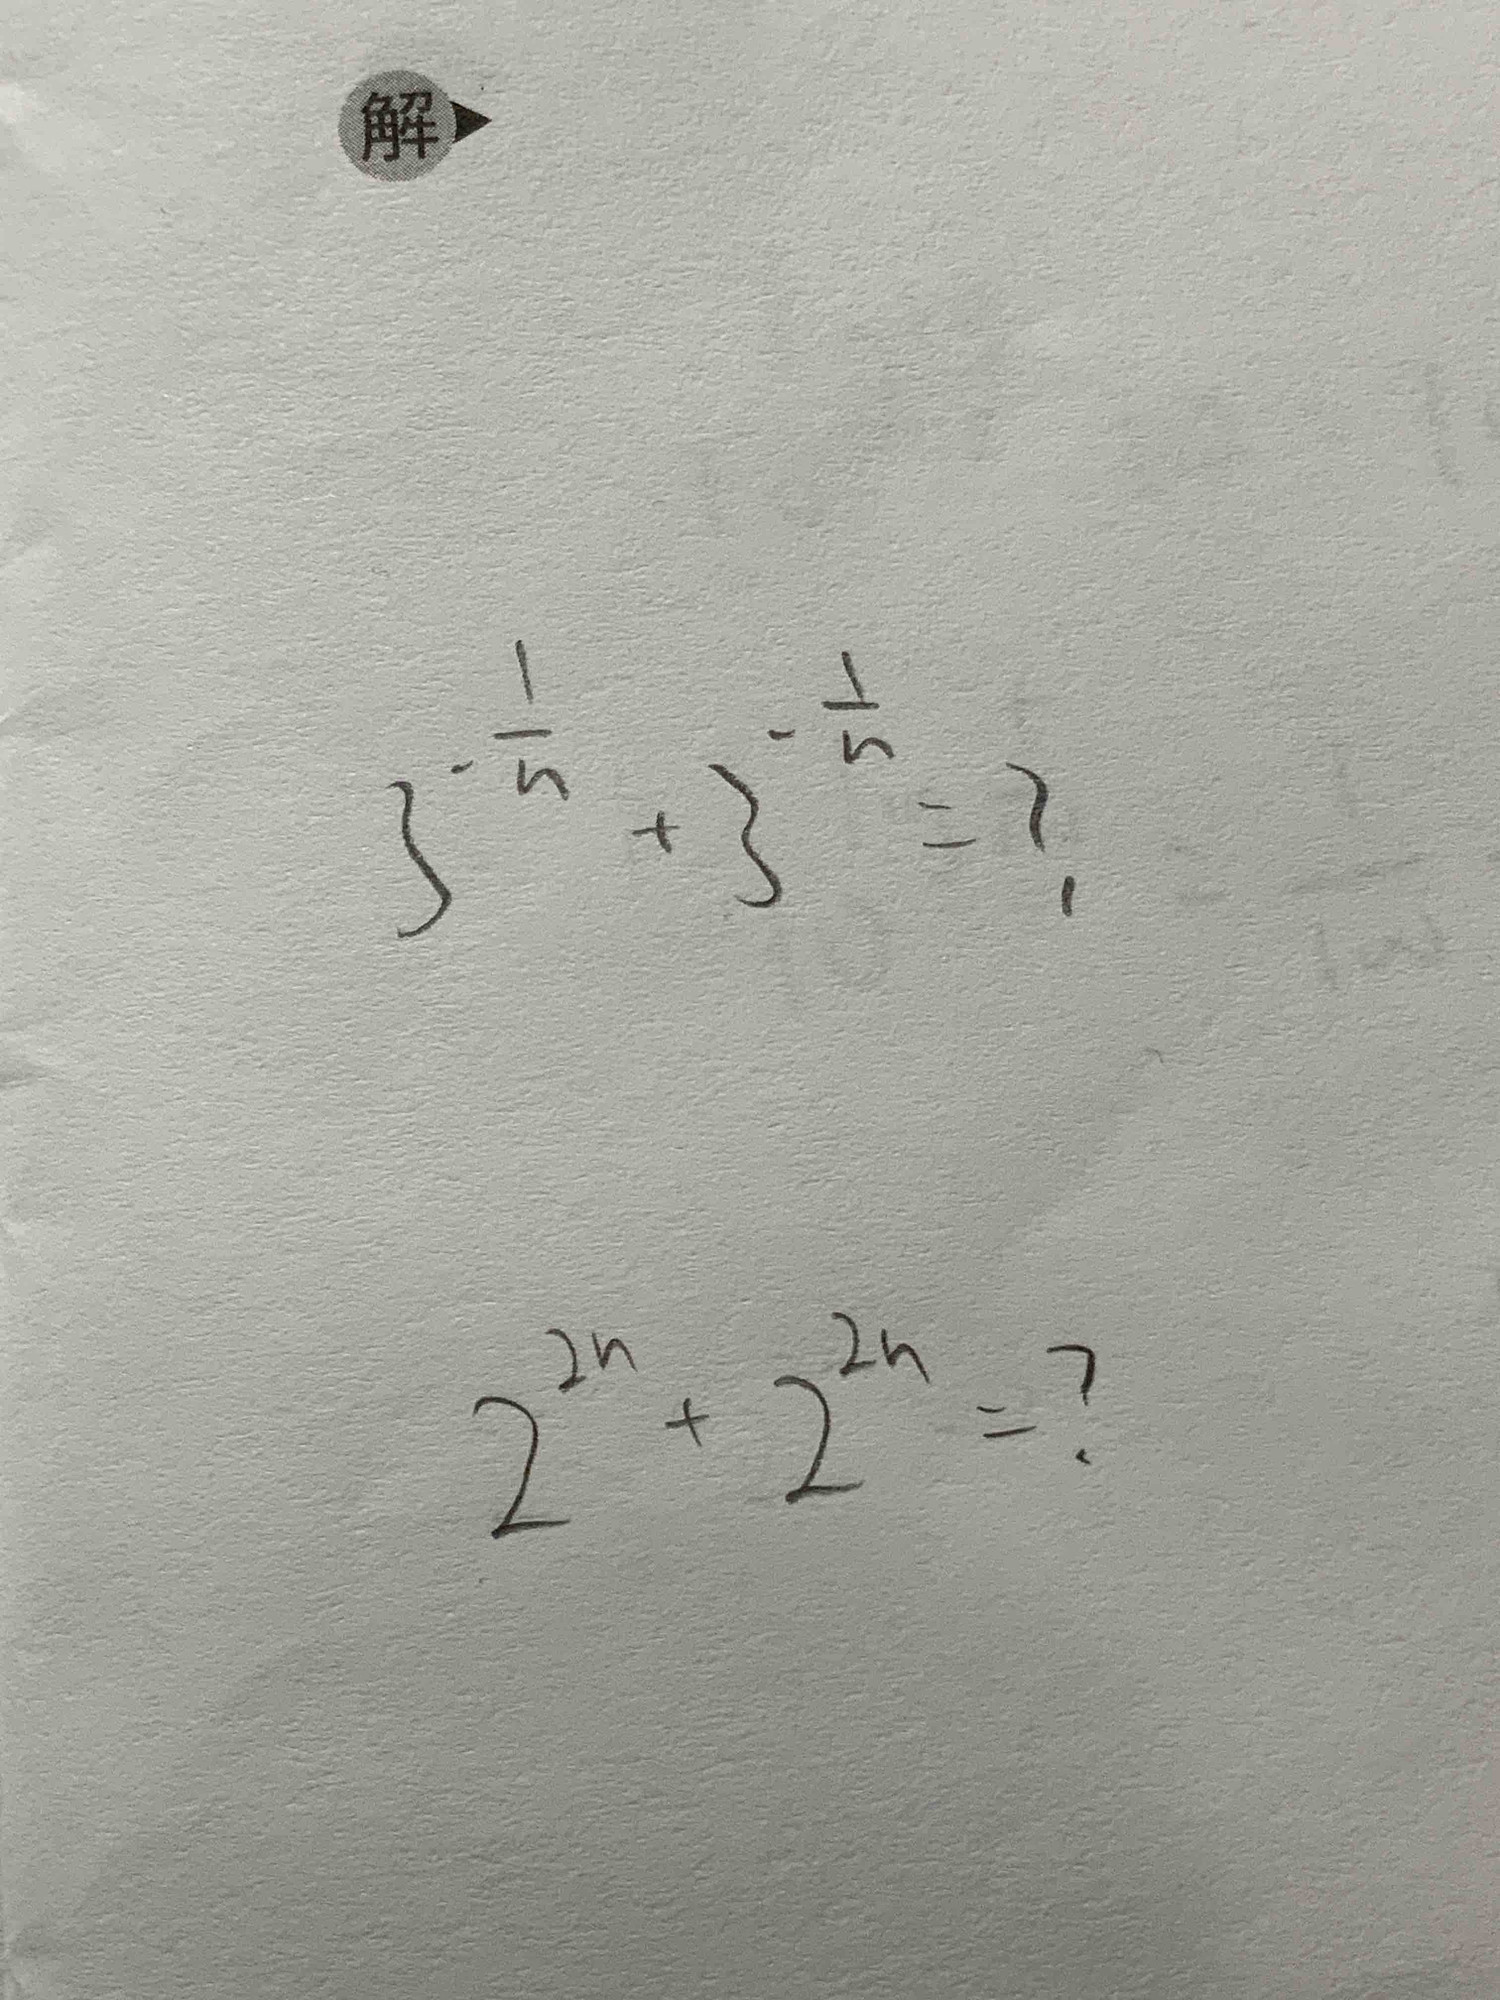 解
3^{-\frac{1}{n}} + 3^{-\frac{1}{n}} = ?
2^{2n} + 2^{2n} = ?